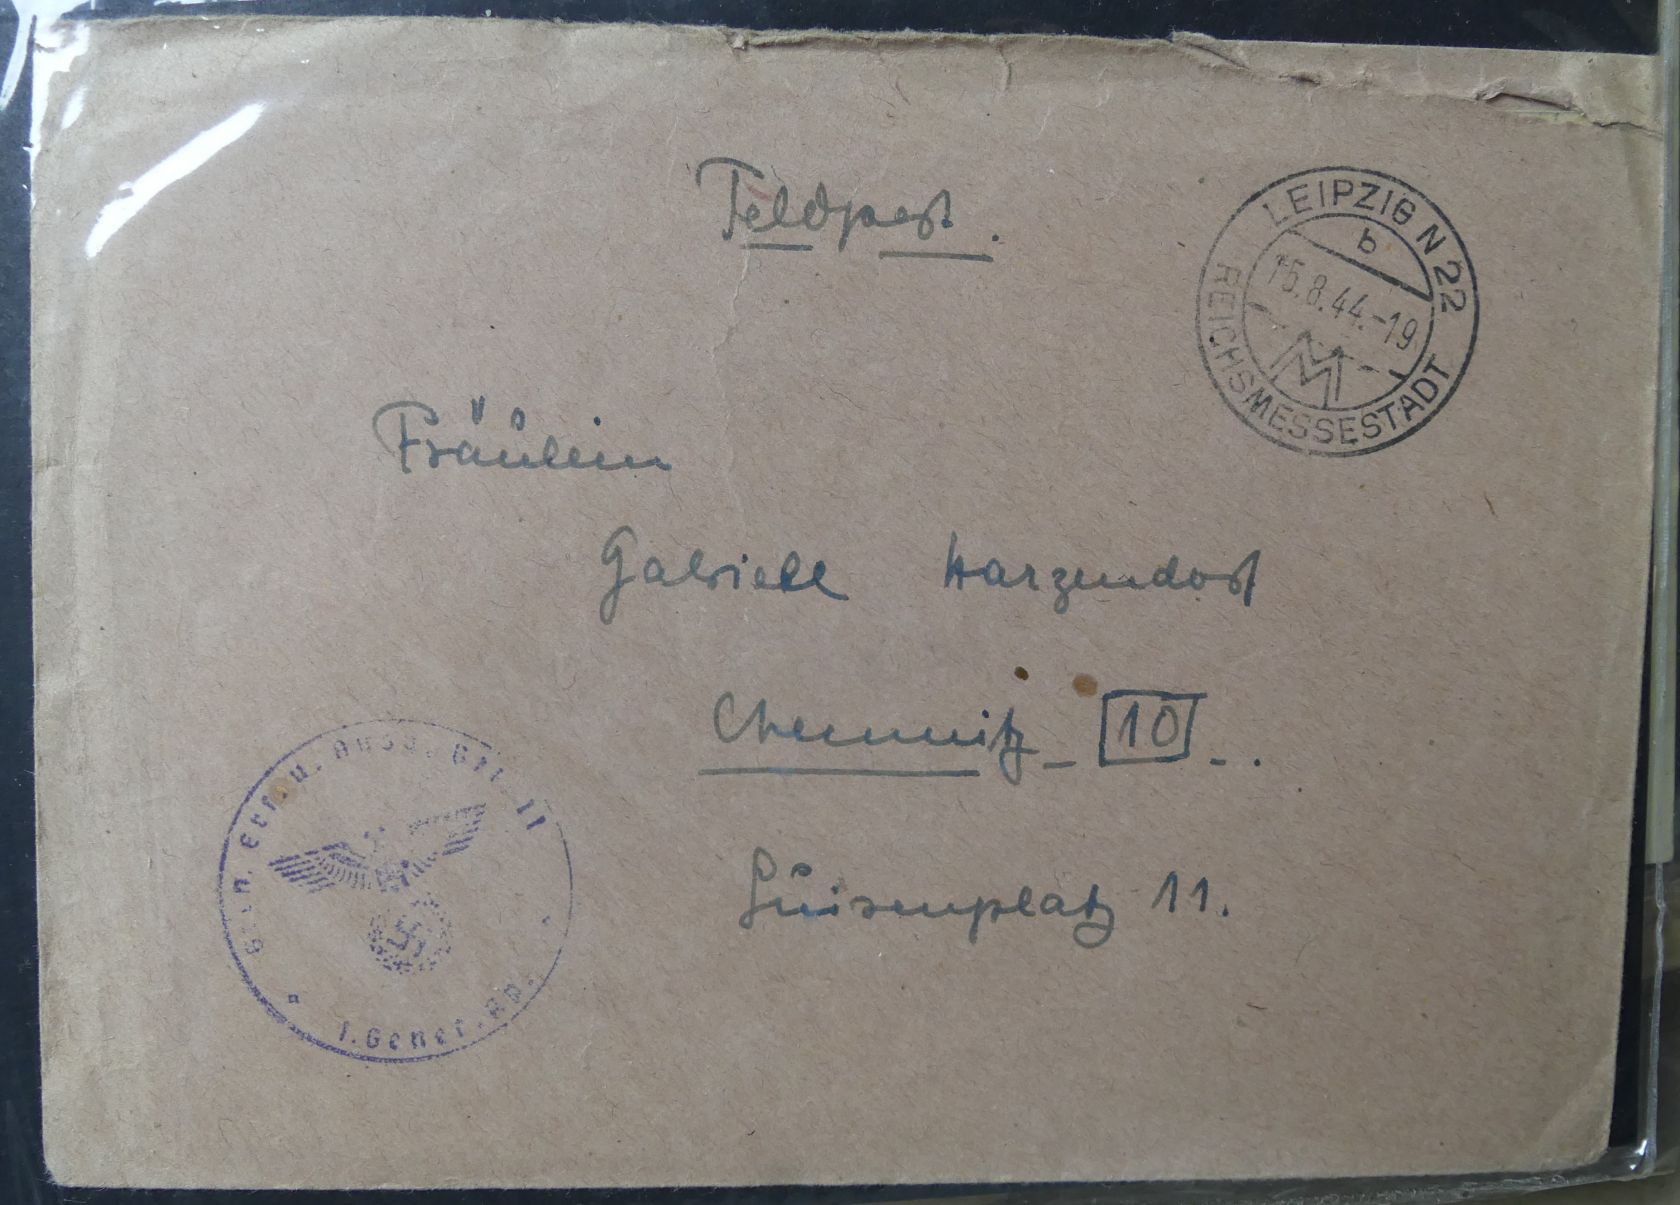 Feldpost.
LEIPZIG N 22
b
15.8.44.-19
REICHSMESSESTADT
Fräulein
Gabriele Harzendorf
Chemnitz - 10 - .
Luisenplatz 11.
Gren. Ersau. Ausb. Btl. II
1. Genes. Kp.